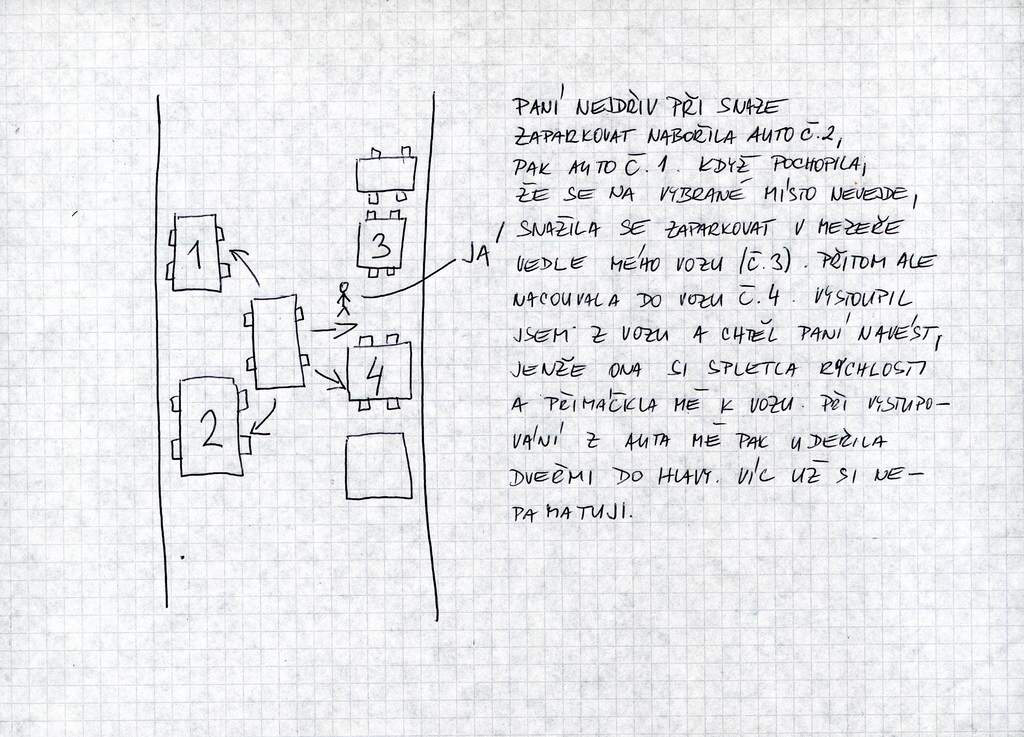 PANÍ NEJDŘÍV PŘI SNAZE
ZAPARKOVAT NABOŘILA AUTO Č.2,
PAK AUTO Č.1. KDYŽ POCHOPILA,
ŽE SE NA VYBRANÉ MÍSTO NEVEJDE,
SNAŽILA SE ZAPARKOVAT V MEZEŘE
VEDLE MÉHO VOZU (Č.3). PŘITOM ALE
NACOUVALA DO VOZU Č.4. VYSTOUPIL
JSEM Z VOZU A CHTĚL PANÍ NAVÉST,
JENŽE ONA SI SPLETLA RYCHLOSTI
A PŘIMÁČKLA MĚ K VOZU. PŘI VYSTUPO-
VÁNÍ Z AUTA MĚ PAK UDEŘILA
DVEŘMI DO HLAVY. VÍC UŽ SI NE-
PAMATUJI.
JÁ
1
3
4
2